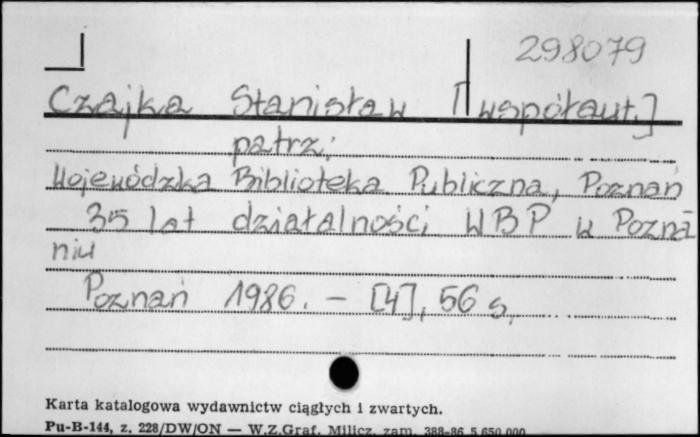 298079
Czajka Stanisław [współaut.]
patrz:
Wojewódzka Biblioteka Publiczna, Poznań
35 lat działalności WBP w Pozna
niu
Poznań 1986. – [4], 56 s.
Karta katalogowa wydawnictw ciągłych i zwartych.
Pu-B-144, z. 228/DW/ON — W.Z.Graf. Milicz, zam. 388-86 5.650.000